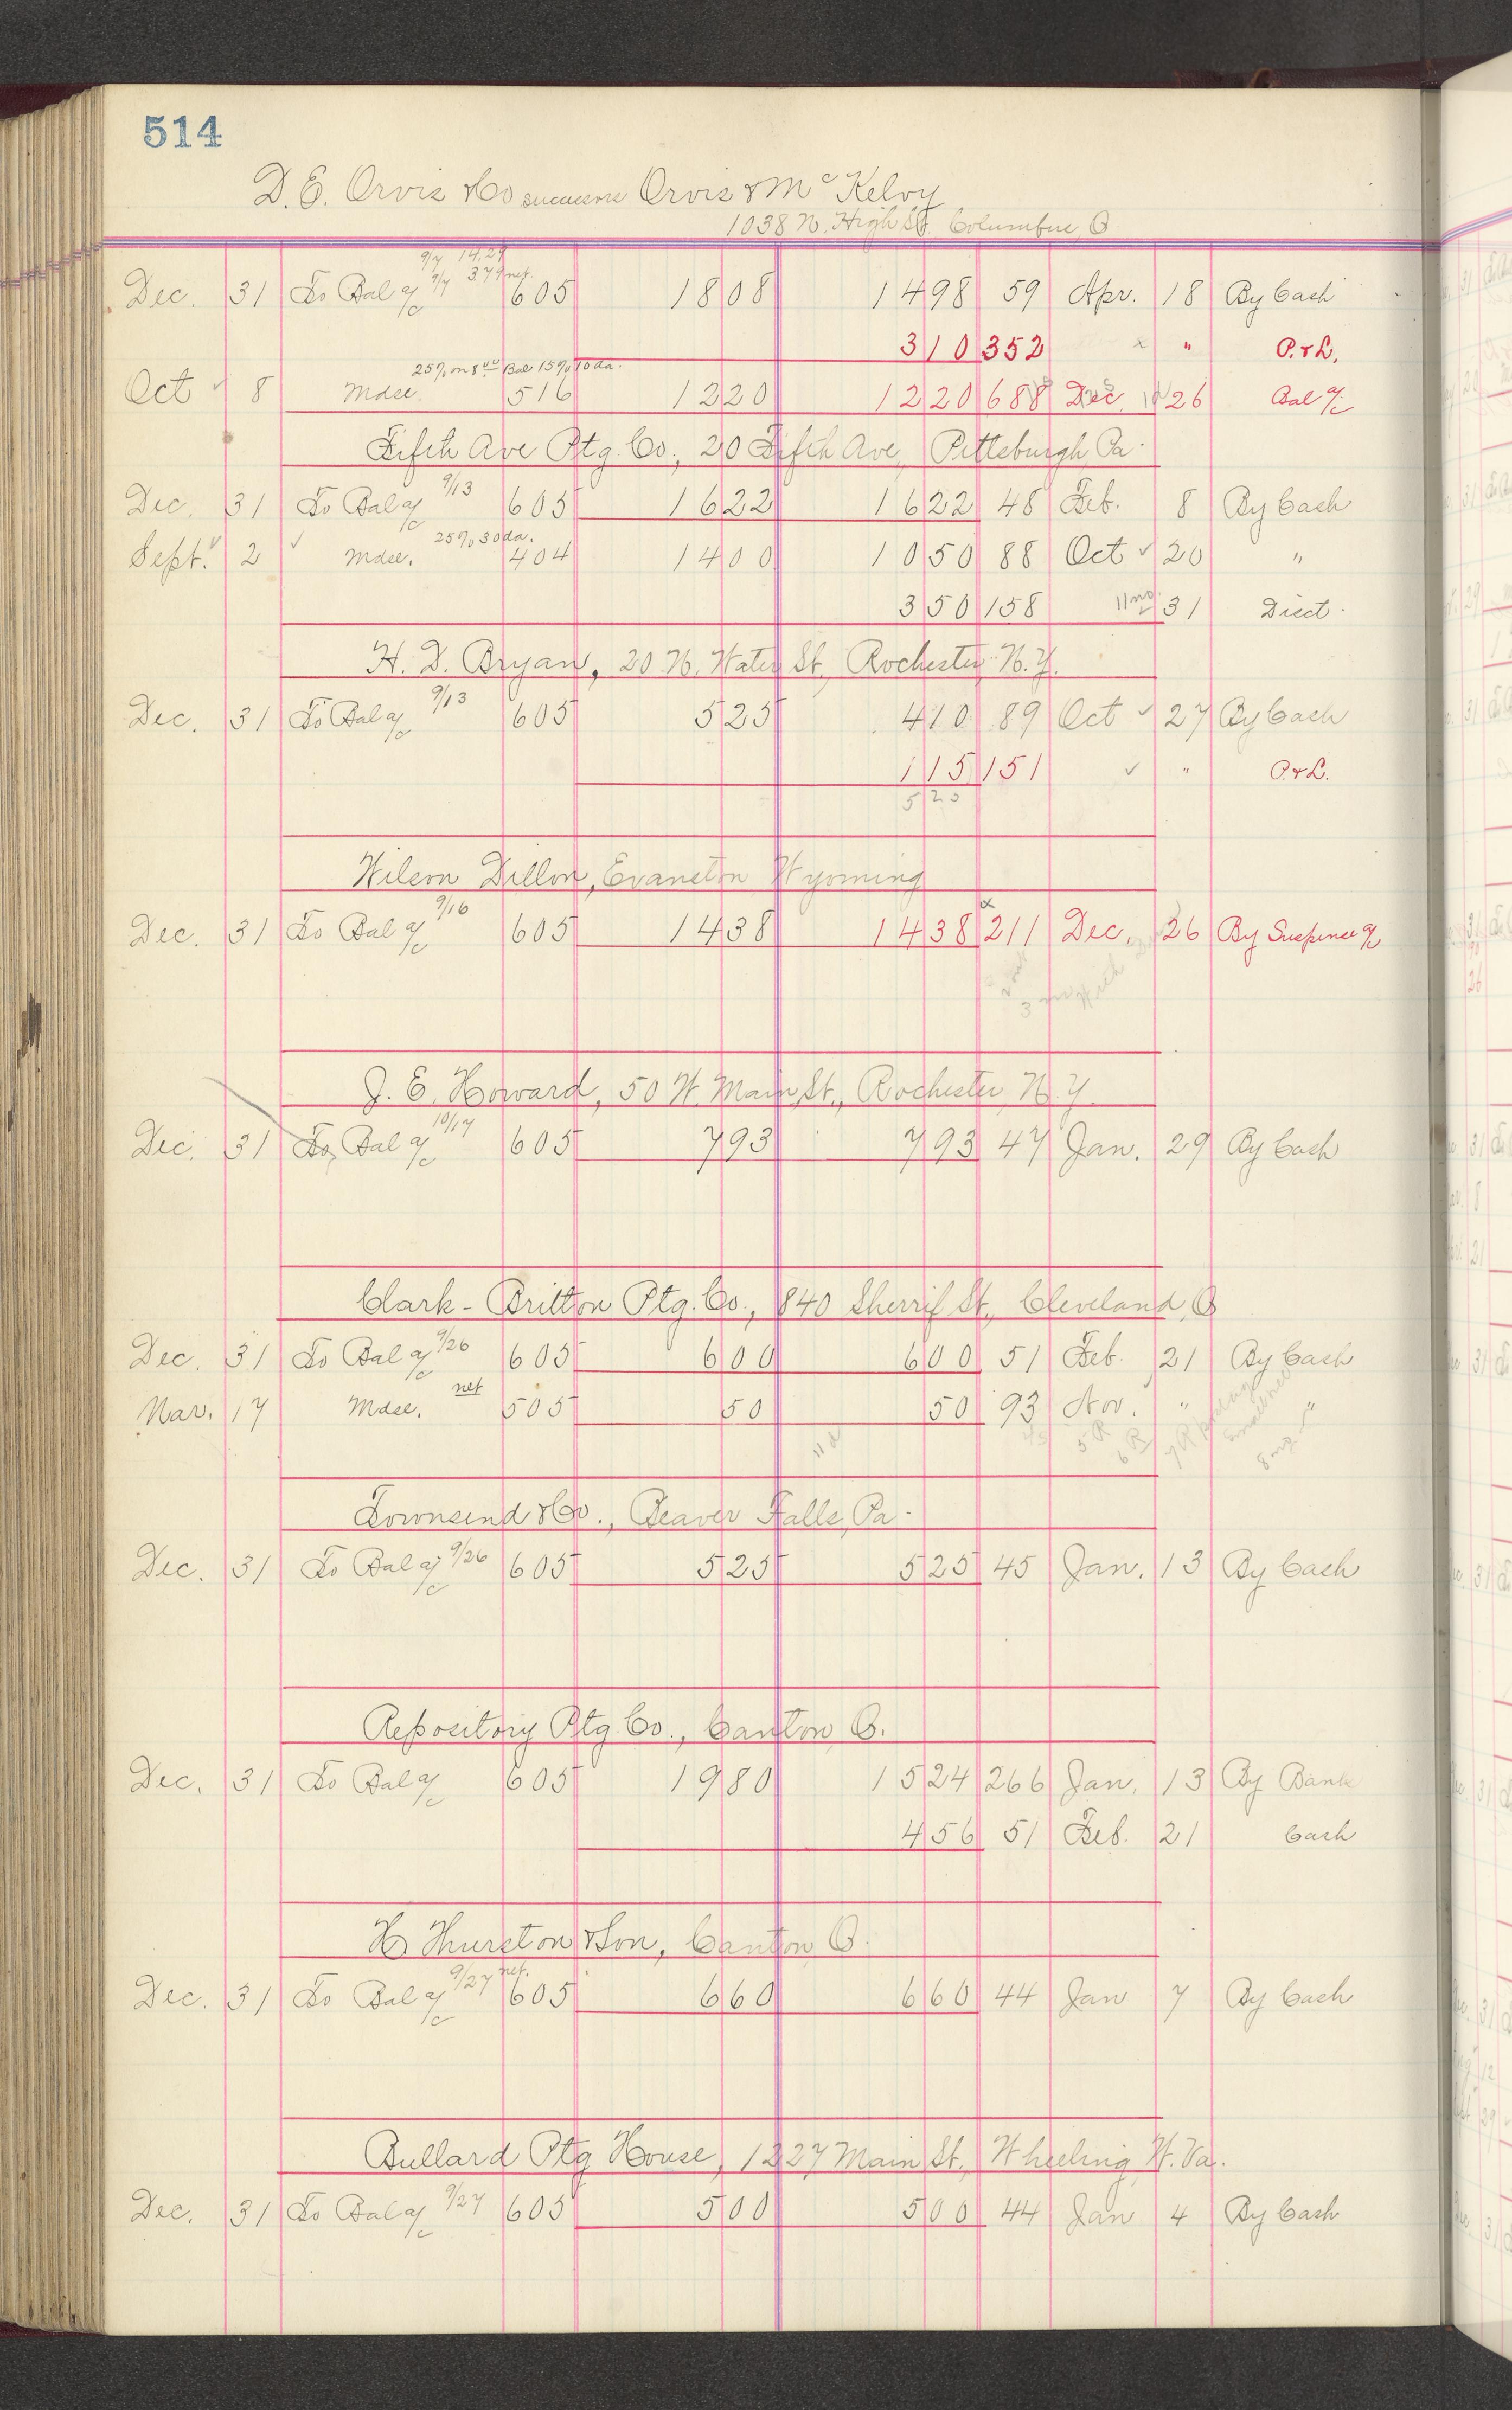 514
D. E. Orvis & Co successors Orvis & McKelvy
1038 N. High St. Columbus, O
9/7 14.29
9/7 3.79 net.
Dec. 31 To Bal a/c 605 1808 1498 59 Apr. 18 By Cash
310 352 x " P. & L.
25% on 8 00 Bal 15% 10 da.
Oct ✓ 8 Mdse. 516 1220 1220 688 Dec. 26 Bal a/c
Fifth Ave Ptg. Co., 20 Fifth Ave, Pittsburgh, Pa.
Dec. 31 To Bal a/c 9/13 605 1622 1622 48 Feb. 8 By Cash
Sept. ✓ 2 ✓ Mdse. 25% 30 da. 404 1400 1050 88 Oct ✓ 20 "
350 158 11 mo 31 Disct.
H. D. Bryan, 20 N. Water St., Rochester N. Y.
Dec. 31 To Bal a/c 9/13 605 525 410 89 Oct ✓ 27 By Cash
115 151 ✓ " P. & L.
525
Wilson Dillon, Evanston Wyoming
Dec. 31 To Bal a/c 9/16 605 1438 1438 211 Dec. 26 By Suspense a/c
J. E. Howard, 50 W. Main St., Rochester N. Y.
Dec. 31 To Bal a/c 10/17 605 793 793 47 Jan. 29 By Cash
Clark-Britton Ptg. Co., 840 Sherrif St., Cleveland, O
Dec. 31 To Bal a/c 9/26 605 600 600 51 Feb. 21 By Cash
Mar. 17 Mdse. net 505 50 50 93 Nov. " "
Townsend & Co., Beaver Falls, Pa.
Dec. 31 To Bal a/c 9/26 605 525 525 45 Jan. 13 By Cash
Repository Ptg. Co., Canton O.
Dec. 31 To Bal a/c 605 1980 1524 266 Jan. 13 By Bank
456 51 Feb. 21 Cash
H Thurston & Son, Canton O.
Dec. 31 To Bal a/c 9/27 net. 605 660 660 44 Jan 7 By Cash
Bullard Ptg House, 1227 Main St., Wheeling W. Va.
Dec. 31 To Bal a/c 9/27 605 500 500 44 Jan 4 By Cash